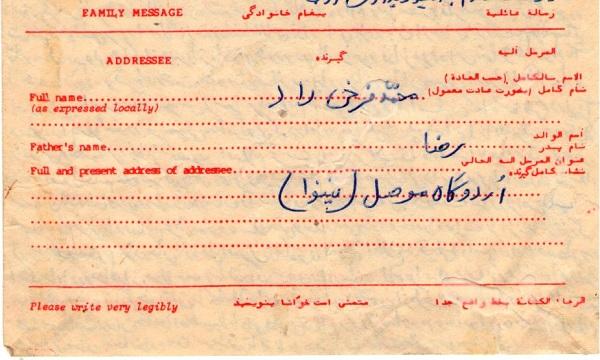 FAMILY MESSAGE پیغام خانوادگی رسالة عائلية
ADDRESSEE گیرنده المرسل اليه
الاسم بالكامل (حسب العادة)
Full name محمد فرخی راد نام کامل (بصورت عادت معمول)
(as expressed locally)
اسم الوالد
Father's name رضا نام پدر
عنوان المرسل اليه الحالي
Full and present address of addressee نشانی کامل گیرنده
اردوگاه موصل (نینوا)
Please write very legibly متمنی است خوانا بنویسید الرجاء الكتابة بخط واضح جدا